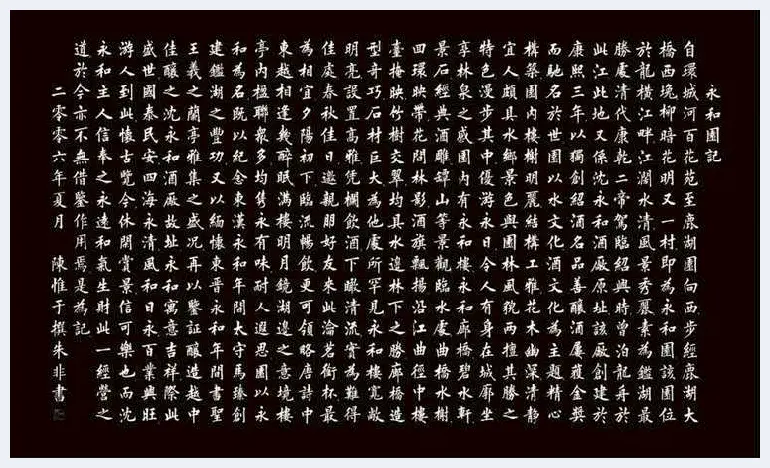 永和園記
自環城河百花苑至鹿湖園向西步經鹿湖大
橋西堍柳暗花明又一村即為永和園該園位
於龍橫江畔江濶水清風景秀麗素為鑑湖最
勝處清代康乾二帝駕臨紹興時曾泊龍舟於
此江此地又係沈永和酒厰原址該厰創建於
康熙三年以獨創紹酒名品善釀酒屢獲金獎
而馳名於世園以水文化酒文化為主題精心
構築園內樓榭明麗結構工雅花木幽深清靜
宜人頗具水鄉景色與園林風貌兩擅其勝之
特色漫步其中優游永日令人有身在城廓坐
享林泉之感園內有永和樓永和廊橋碧水軒
景石經典酒雕罈山等景觀臨水處曲橋水榭
回環映帶花間林影酒旗飄揚沿江曲徑中樓
臺掩映竹樹交翠均具水邊林下之勝廊橋造
型奇巧石材巨大為他處所罕見永和樓寬敞
明亮設置高雅凭欄飲酒下瞰清流實為難得
佳處春秋佳日邀親朋好友來此淪茗銜杯最
為相宜夕陽初下臨流暢飲更可領略唐詩中
東越相逢幾醉眠滿樓明月鏡湖邊之意境樓
亭內楹聯衆多均雋永有味耐人遐思園以永
和為名既以紀念東漢永和年間太守馬臻創
建鑑湖之豐功又以緬懷東晉永和年間書聖
王羲之蘭亭雅集之盛况再以鑒証釀造越中
佳釀之沈永和酒厰故址永和寓意吉祥際此
盛世國泰民安四海永清風和日永百業興旺
游人到此懷古覽今休閒賞景信可樂也而沈
永和主人信奉之永遠和氣生財此一經營之
道於今亦不無借鑒作用焉是為記
二零零六年夏月 陳惟于撰朱非書